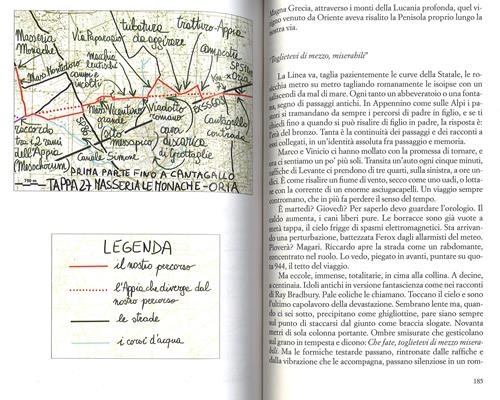 Masseria
Monache
Via Paparazio
tubatura
da aggirare
tratturo-Appia
campestre
SP51
x Oria
Mass. Montedoro
cumuli
incolti
macchia
lentischi
Mass. Vicentino
grande
letto
mesapico
Viadotto
romano
cava
discarica
di Grottaglie
EX SS603
Cantagallo
contrada
SP86
Canale Simone
raccordo
tra i 2 rami
dell'Appia
Mesochorum
750 m
PRIMA PARTE FINO A CANTAGALLO
TAPPA 27 MASSERIA LE MONACHE - ORIA
LEGENDA
il nostro percorso
l'Appia che diverge dal
nostro percorso
le strade
i corsi d'acqua
Magna Grecia, attraverso i monti della Lucania profonda, quel vi-
tigno venuto da Oriente aveva risalito la Penisola proprio lungo la
nostra via.
"Toglietevi di mezzo, miserabili"
La Linea va, taglia pazientemente le curve della Statale, le ro-
sicchia metro su metro tagliando romanamente le isoipse con un
saliscendi da mal di mare. Ogni tanto un abbeveratoio o una fonta-
na, segno di passaggi antichi. In Appennino come sulle Alpi i pasto-
ri si tramandano da sempre i percorsi di padre in figlio, e se ti
capita di chiedere fino a quando si può risalire di figlio in padre, la risposta è:
l'età del bronzo. Tanta è la continuità dei passaggi e dei racconti a
essi collegati, in un'identità assoluta fra passaggio e memoria.
Marco e Vinicio ci hanno mollato con la promessa di tornare, e
ora ci sentiamo un po' più soli. Transita un'auto ogni cinque minuti,
raffiche di Levante ci prendono di tre quarti, sulla sinistra, a ore un-
dici. È come risalire un fiume di vento, secco come uno uadi, o lotta-
re con la corrente di un enorme asciugacapelli. Un viaggio sempre
contromano, che in più fa perdere il senso del tempo.
È martedì? Giovedì? Per saperlo devo guardare l'orologio. Il
caldo aumenta, i cani liberi pure. Le borracce sono già vuote a
metà tappa, il cielo frigge di spasmi elettromagnetici. Sta arrivan-
do una perturbazione, battezzata Ferox dagli allarmisti del meteo.
Pioverà? Magari. Riccardo apre la strada come un rabdomante,
concentrato nel ruolo. Lo vedo, piegato in avanti, puntare su quo-
ta 944, il tetto del viaggio.
Ma eccole, immense, totalitarie, in cima alla collina. A decine,
a centinaia. Idoli antichi in versione fantascienza come nei racconti
di Ray Bradbury. Pale eoliche le chiamano. Toccano il cielo e sono
l'ultimo capolavoro della devastazione. Sembrano lente ma, quan-
do ci sei sotto, precipitano come ghigliottine, pare siano sempre
sul punto di staccarsi dal giunto come braccia slogate. Novanta
metri di sola colonna portante. Ombre smisurate che gesticolano
sul grano in tempesta e dicono: Che fate, toglietevi di mezzo misera-
bili. Ma le formiche testarde passano, rintronate dalle raffiche e
dalla vibrazione che le accompagna, passano silenziose in un rom-
185